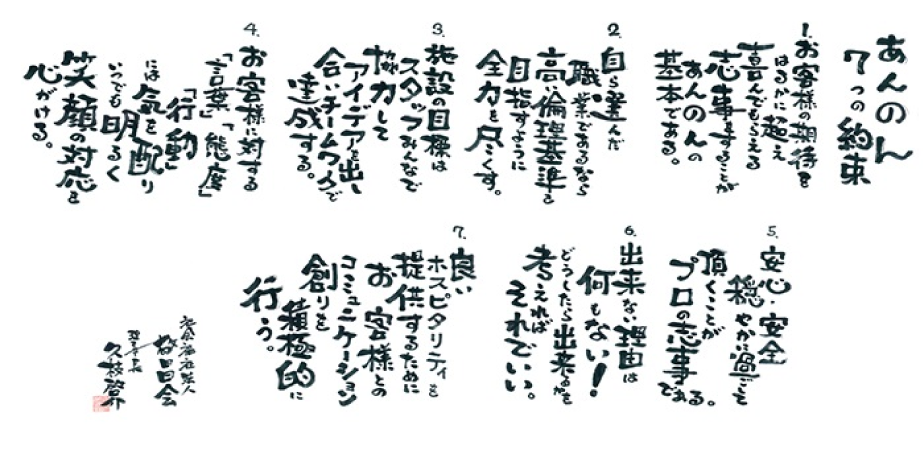 あんのん
7つの約束
1.お客様の期待を
はるかに超え
喜んでもらえる
志事をすることが
あんのんの
基本である。
2.自ら選んだ
職業であるなら
高い倫理基準を
目指すように
全力を尽くす。
3.施設の目標は
スタッフみんなで
協力して
アイデアを出し
合いチームワークで
達成する。
4.お客様に対する
「言葉」「態度」
「行動」
には気を配り
いつでも明るく
笑顔の対応を
心がける。
5.安心・安全
穏やかに過ごして
頂くことが
プロの志事である。
6.出来ない理由は
何もない!
どうしたら出来るかを
考えれば
それでいい。
7.良い
ホスピタリティを
提供するために
お客様との
コミュニケーション
創りを
積極的に
行う。
社会福祉法人